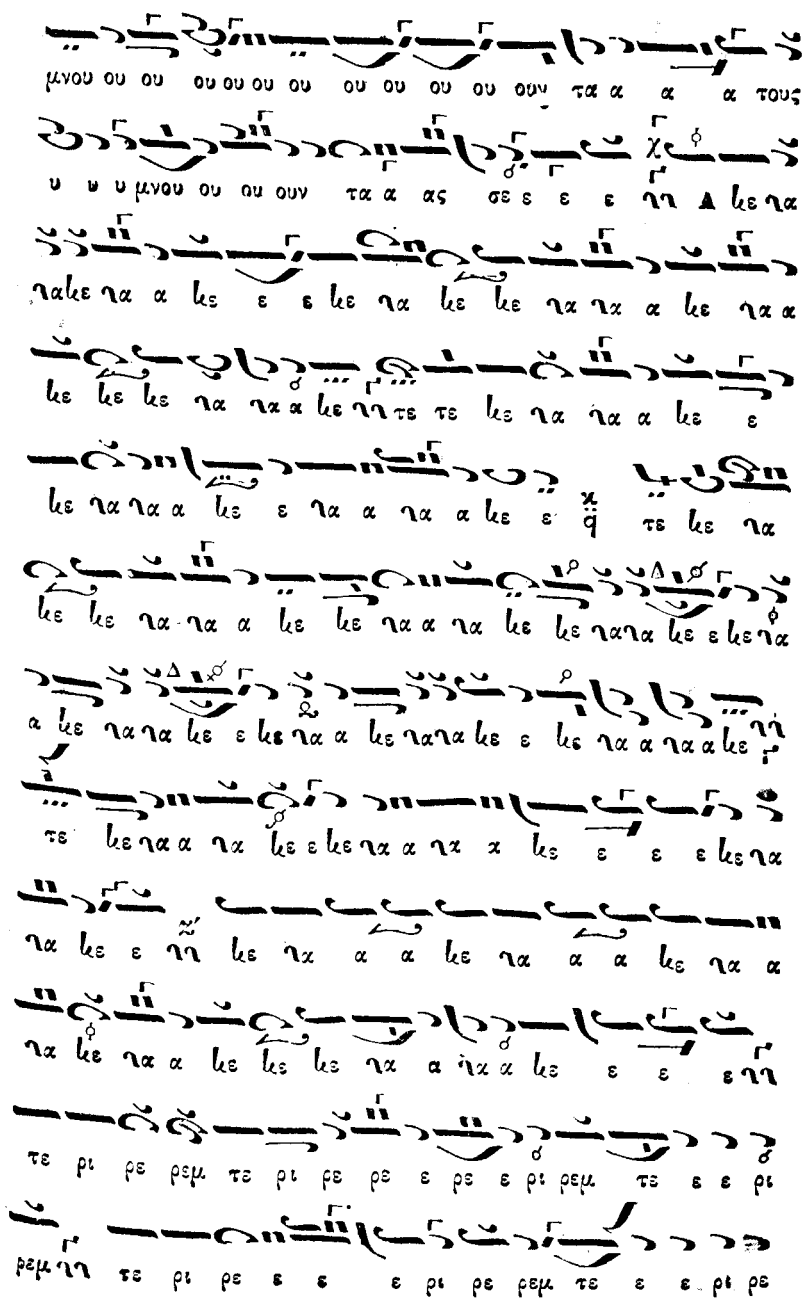 μνου ου ου ου ου ου ου ου ου ου ου ουν τα α α α τους
υ υ υ μνου ου ου ουν τα α ας σε ε ε ε Α κε να
να κε να α κε ε ε κε να κε κε να να α κε να α
κε κε κε να να α κε τε τε κε να να α κε ε
κε να να α κε ε να α να α κε ε τε κε να
κε κε να να α κε κε να α να κε κε να να κε ε κε να
α κε να να κε ε κε να α κε να να κε ε κε να α να α κε
τε κε να α να κε ε κε να α να α κε ε ε ε κε να
να κε ε κε να α α κε να α α κε να α
να κε να α κε κε κε να α να α κε ε ε ε
τε ρι ρε ρεμ τε ρι ρε ρε ε ρε ε ρι ρεμ τε ε ε ρι
ρεμ τε ρι ρε ε ε ε ρι ρε ρεμ τε ε ε ρι ρε